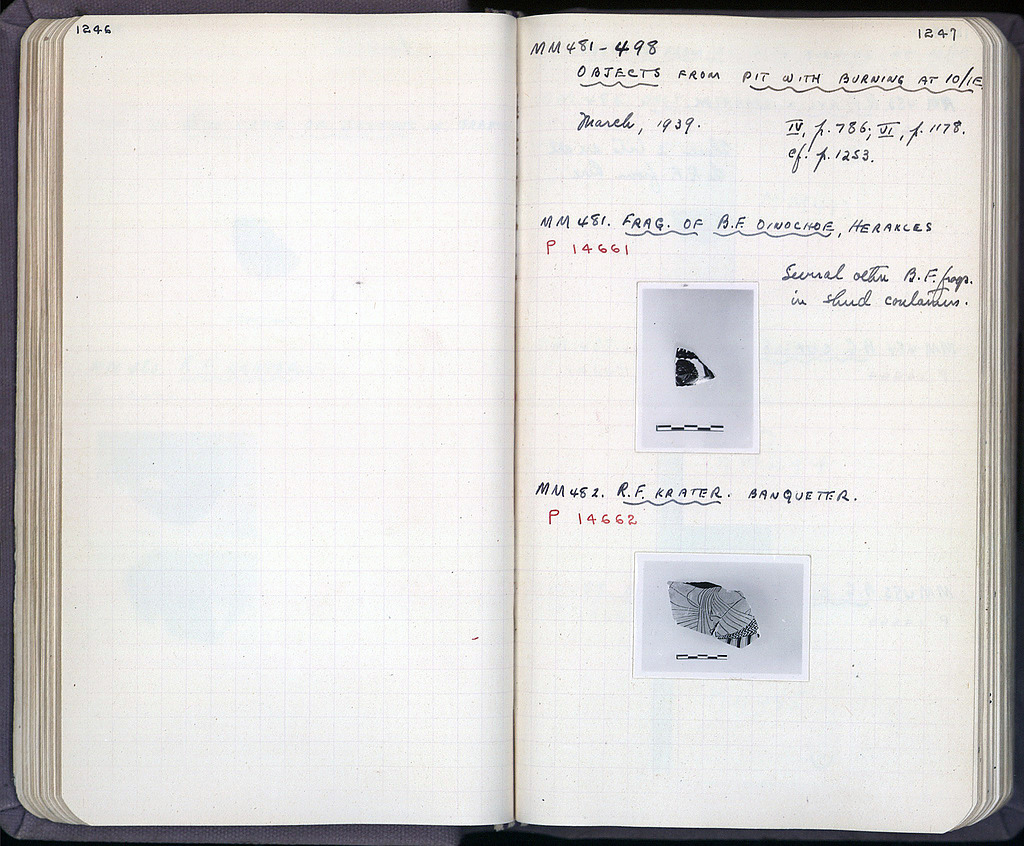 1246
1247
MM 481-498
OBJECTS FROM PIT WITH BURNING AT 10/ΙΕ
March, 1939.
IV, p. 786, VI, p. 1178.
cf. p. 1253.
MM 481. FRAG. OF B.F. OINOCHOE, HERAKLES
P 14661
Several other B.F. frags.
in sherd containers.
MM 482. R.F. KRATER. BANQUETER.
P 14662